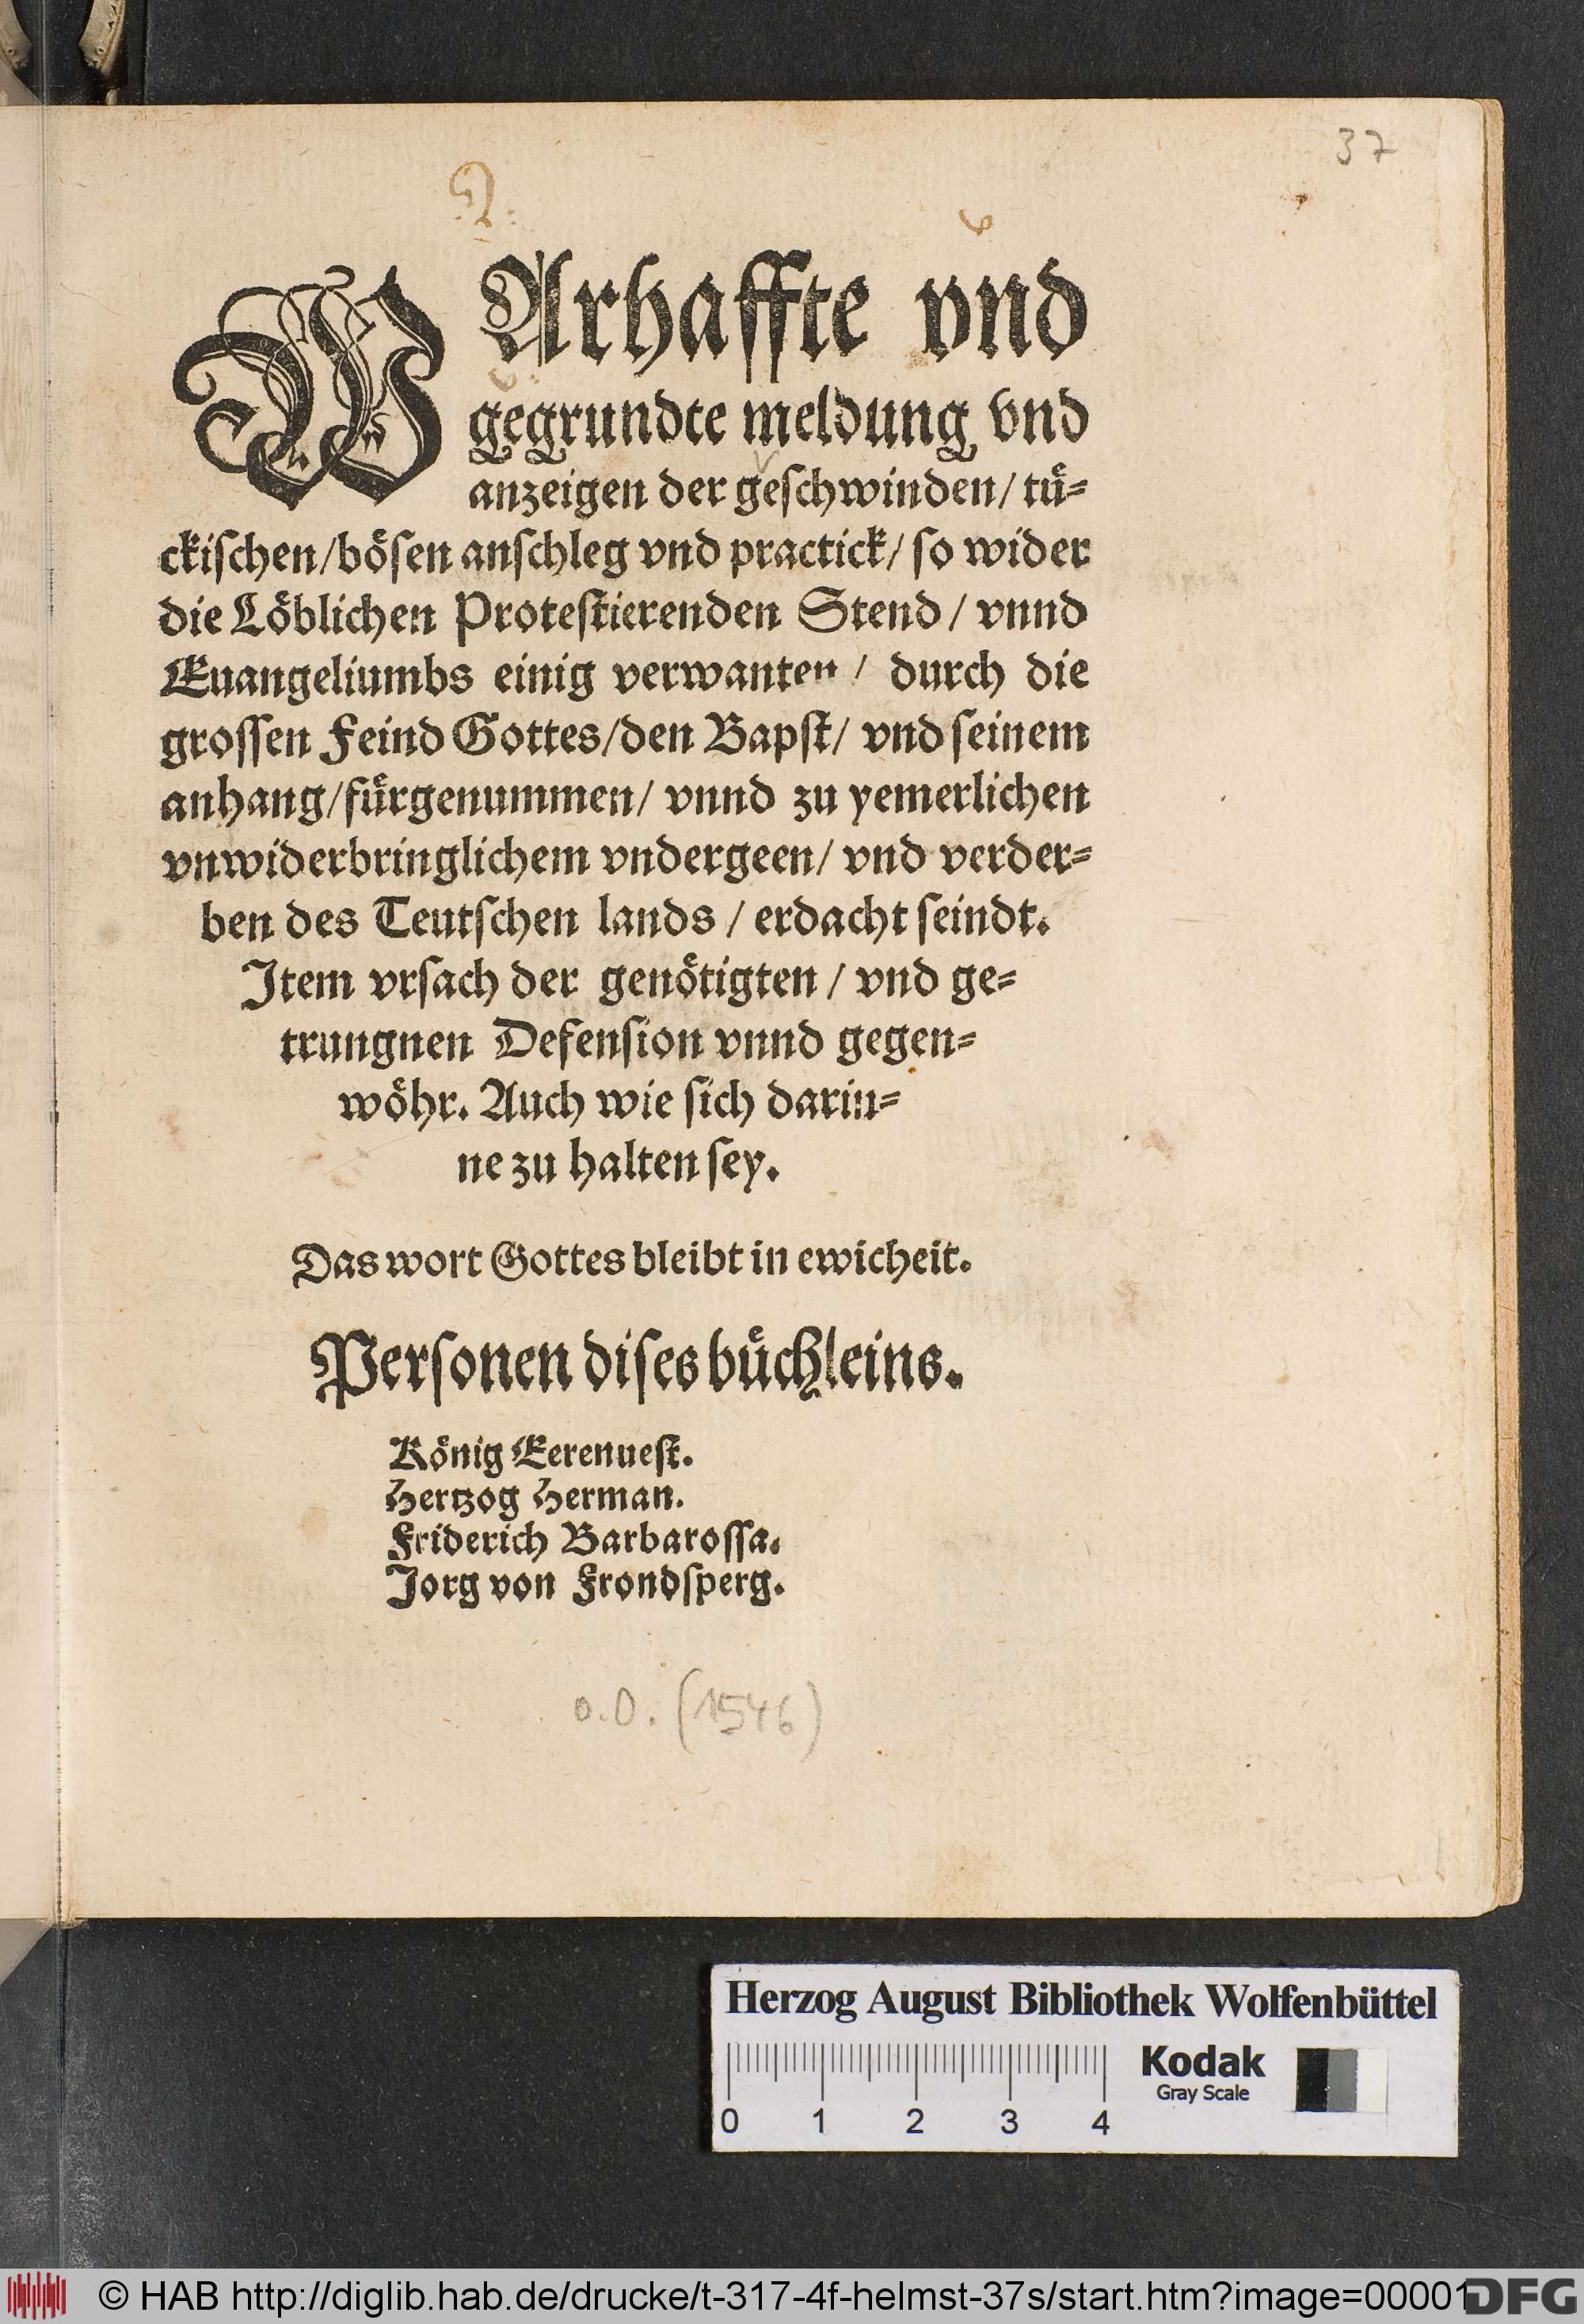 37
WArhaffte vnd
gegrundte meldung vnd
anzeigen der geschwinden/ tuͤ-
ckischen/boͤsen anschleg vnd practick/ so wider
die Loͤblichen Protestierenden Stend/ vnnd
Euangeliumbs einig verwanten / durch die
grossen Feind Gottes/den Bapst/ vnd seinem
anhang/fuͤrgenummen/ vnnd zu yemerlichen
vnwiderbringlichem vndergeen/ vnd verder-
ben des Teutschen lands / erdacht seindt.
Item vrsach der genoͤtigten / vnd ge-
trungnen Defension vnnd gegen-
woͤhr. Auch wie sich darin-
ne zu halten sey.
Das wort Gottes bleibt in ewicheit.
Personen dises buͤchleins.
Koͤnig Eerenuest.
Hertzog Herman.
Friderich Barbarossa.
Jorg von Frondsperg.
o.O. (1546)
Herzog August Bibliothek Wolfenbüttel
Kodak
Gray Scale
0 1 2 3 4
© HAB http://diglib.hab.de/drucke/t-317-4f-helmst-37s/start.htm?image=00001
DFG